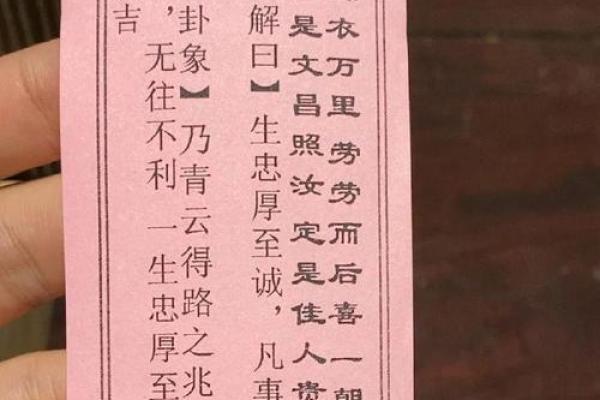 衣万里劳劳而后喜一朝
是文昌照汝定是佳人贵
解曰】生忠厚至诚，凡事
卦象】乃青云得路之兆
，无往不利 一生忠厚至
吉